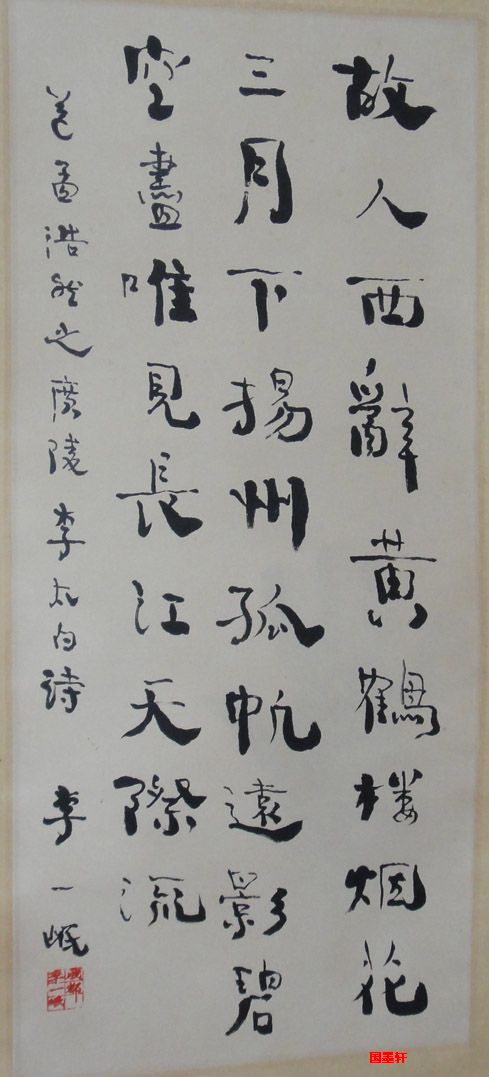 故人西辭黄鶴楼烟花
三月下揚州孤帆遠影碧
空盡唯見長江天際流
送孟浩然之廣陵李太白詩 李一氓
成都
李一氓
国墨轩